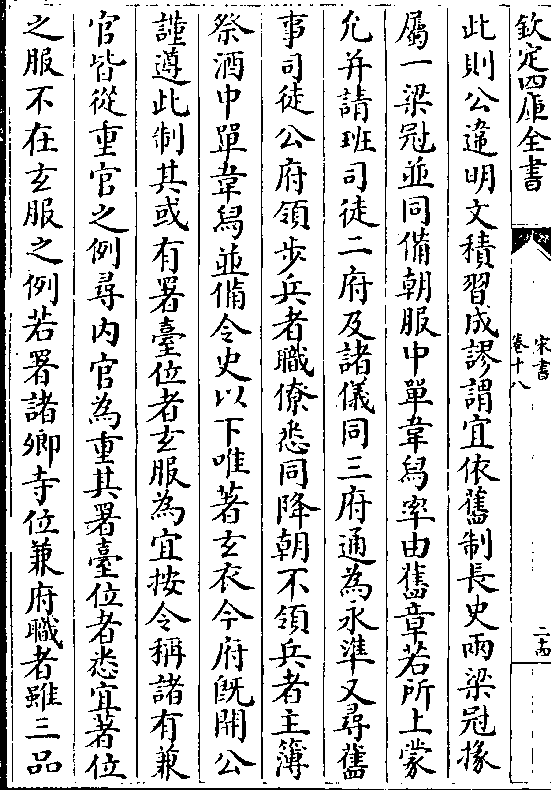 欽定四庫全書
宋書
卷十八
二十四
此則公違明文積習成謬謂宜依舊制長史兩梁冠掾
屬一梁冠並同備朝服中單韋舄率由舊章若所上蒙
允并請班司徒二府及諸儀同三府通為永準又尋舊
事司徒公府領步兵者職僚悉同降朝不領兵者主簿
祭酒中單韋舄並備令史以下唯著玄衣今府既開公
謹遵此制其或有署臺位者玄服為宜按令稱諸有兼
官皆從重官之例尋內官為重其署臺位者悉宜著位
之服不在玄服之例若署諸卿寺位兼府職者雖三品